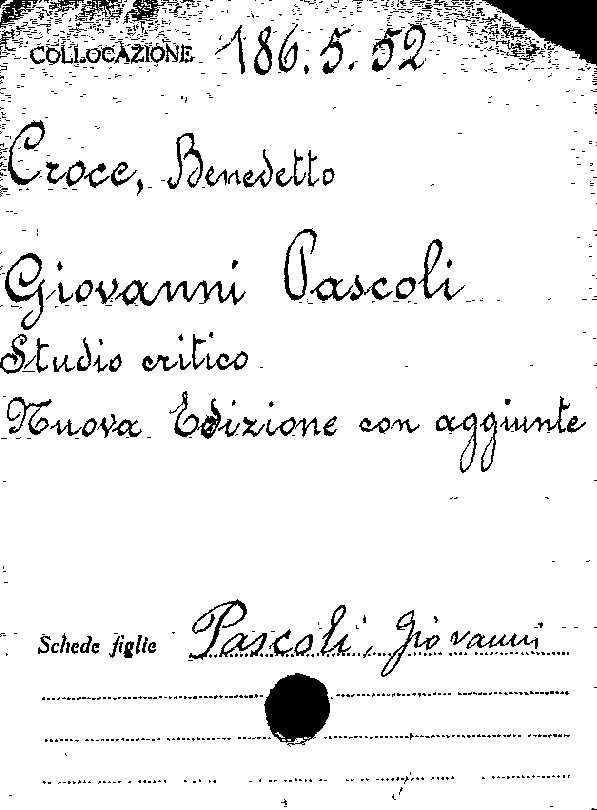 COLLOCAZIONE 186.5.52
Croce, Benedetto
Giovanni Pascoli
Studio critico
Nuova Edizione con aggiunte
Schede figlie Pascoli, Giovanni